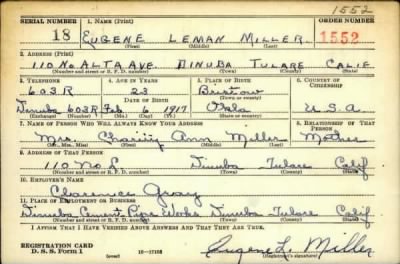 1552
SERIAL NUMBER 1. NAME (Print) ORDER NUMBER
18 EUGENE LEMAN MILLER 1552
(First) (Middle) (Last)
2. ADDRESS (Print)
110 NO ALTA AVE. DINUBA TULARE CALIF
(Number and street or R. F. D. number) (Town) (County) (State)
3. TELEPHONE 4. AGE IN YEARS 5. PLACE OF BIRTH 6. COUNTRY OF CITIZENSHIP
603R 23 Bristow
DATE OF BIRTH (Town or county)
Dinuba 603R Feb 6 1917 Okla U.S.A
(Exchange) (Number) (Mo.) (Day) (Yr.) (State or country)
7. NAME OF PERSON WHO WILL ALWAYS KNOW YOUR ADDRESS 8. RELATIONSHIP OF THAT PERSON
Mrs. Charity Ann Miller Mother
(Mr., Mrs., Miss) (First) (Middle) (Last)
9. ADDRESS OF THAT PERSON
110 No L Dinuba Tulare Calif
(Number and street or R. F. D. number) (Town) (County) (State)
10. EMPLOYER'S NAME
Clarence Gray
11. PLACE OF EMPLOYMENT OR BUSINESS
Dinuba Cement Pipe Works Dinuba Tulare Calif
(Number and street or R. F. D. number) (Town) (County) (State)
I AFFIRM THAT I HAVE VERIFIED ABOVE ANSWERS AND THAT THEY ARE TRUE.
REGISTRATION CARD
D. S. S. Form 1 16-17105 Eugene L. Miller
(over) (Registrant's signature)